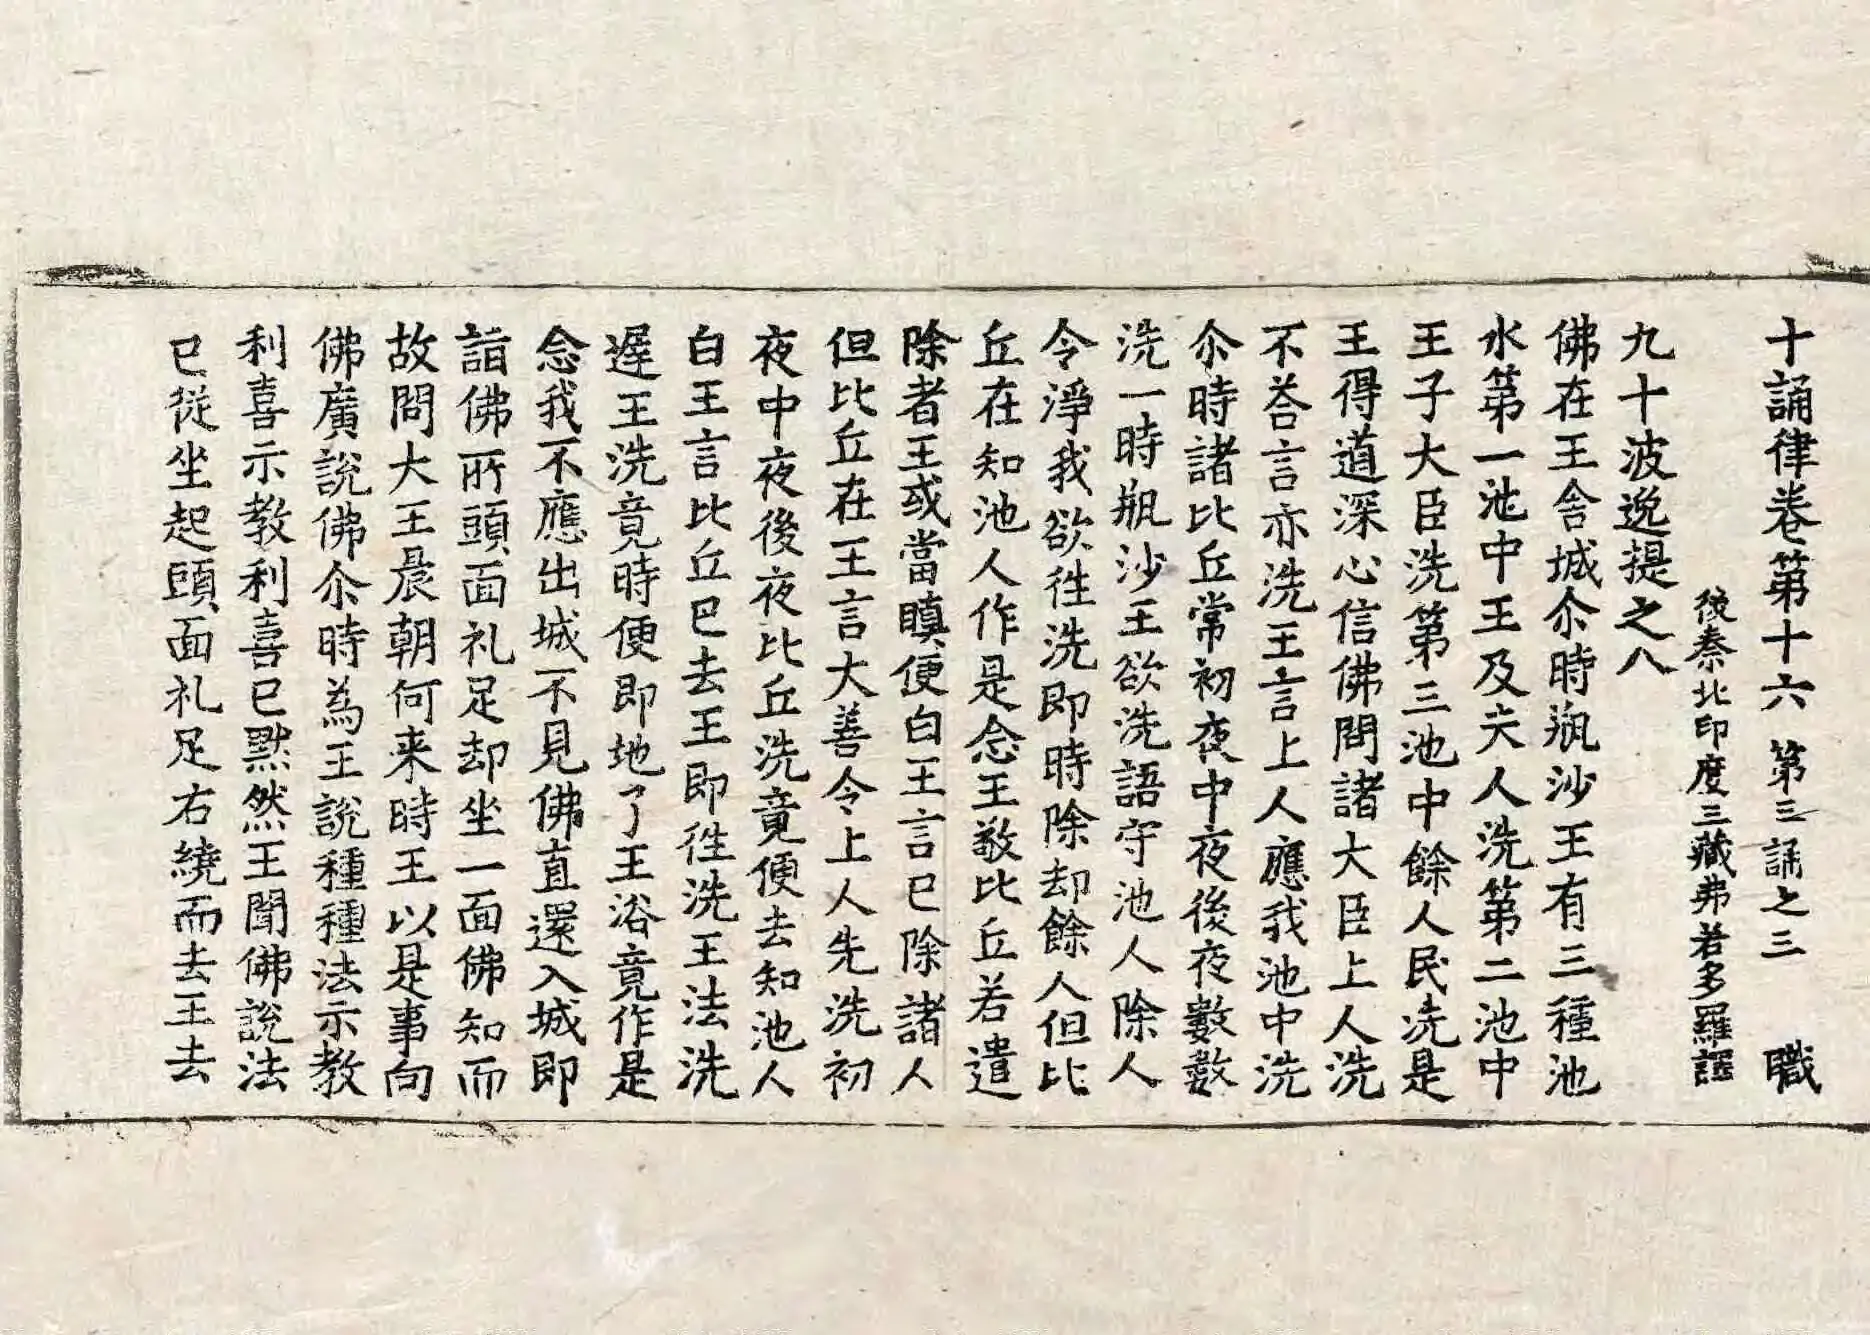 十誦律卷第十六 第三誦之三 職
後秦北印度三藏弗若多羅譯
九十波逸提之八
佛在王舍城尒時瓶沙王有三種池
水第一池中王及夫人洗第二池中
王子大臣洗第三池中餘人民洗是
王得道深心信佛問諸大臣上人洗
不荅言亦洗王言上人應我池中洗
尒時諸比丘常初夜中夜後夜數數
洗一時瓶沙王欲洗語守池人除人
令淨我欲往洗即時除却餘人但比
丘在知池人作是念王敬比丘若遣
除者王或當瞋便白王言已除諸人
但比丘在王言大善令上人先洗初
夜中夜後夜比丘洗竟便去知池人
白王言比丘已去王即往洗王法洗
遲王洗竟時便即地了王浴竟作是
念我不應出城不見佛直還入城即
詣佛所頭面礼足却坐一面佛知而
故問大王晨朝何来時王以是事向
佛廣說佛尒時為王說種種法示教
利喜示教利喜已默然王聞佛說法
已從坐起頭面礼足右繞而去王去